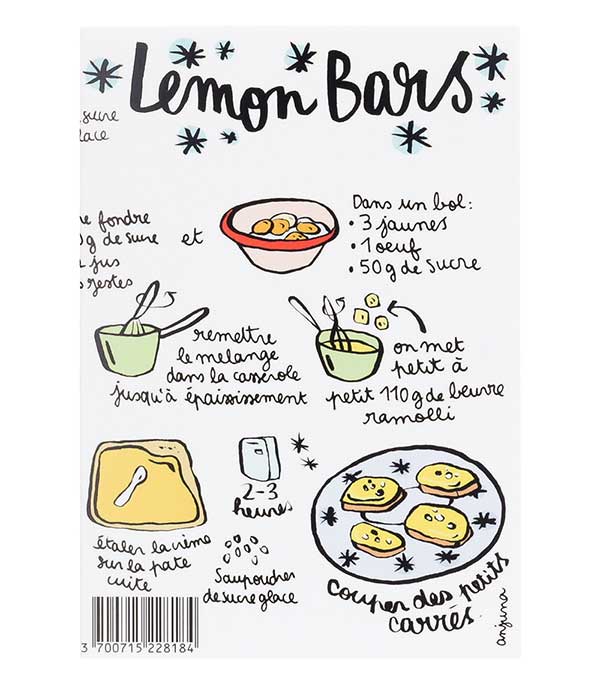 Lemon Bars
sucre
lace
fondre
g de sucre
et
jus
restes
Dans un bol:
• 3 jaunes
• 1 oeuf
• 50g de sucre
remettre
le melange
dans la casserole
jusqu'à épaississement
on met
petit à
petit 110g de beurre
ramolli
étaler la crème
sur la pate
cuite
2-3
heures
Saupoudrer
de sucre glace
couper des petits
carrés
anjuna
3 700715 228184